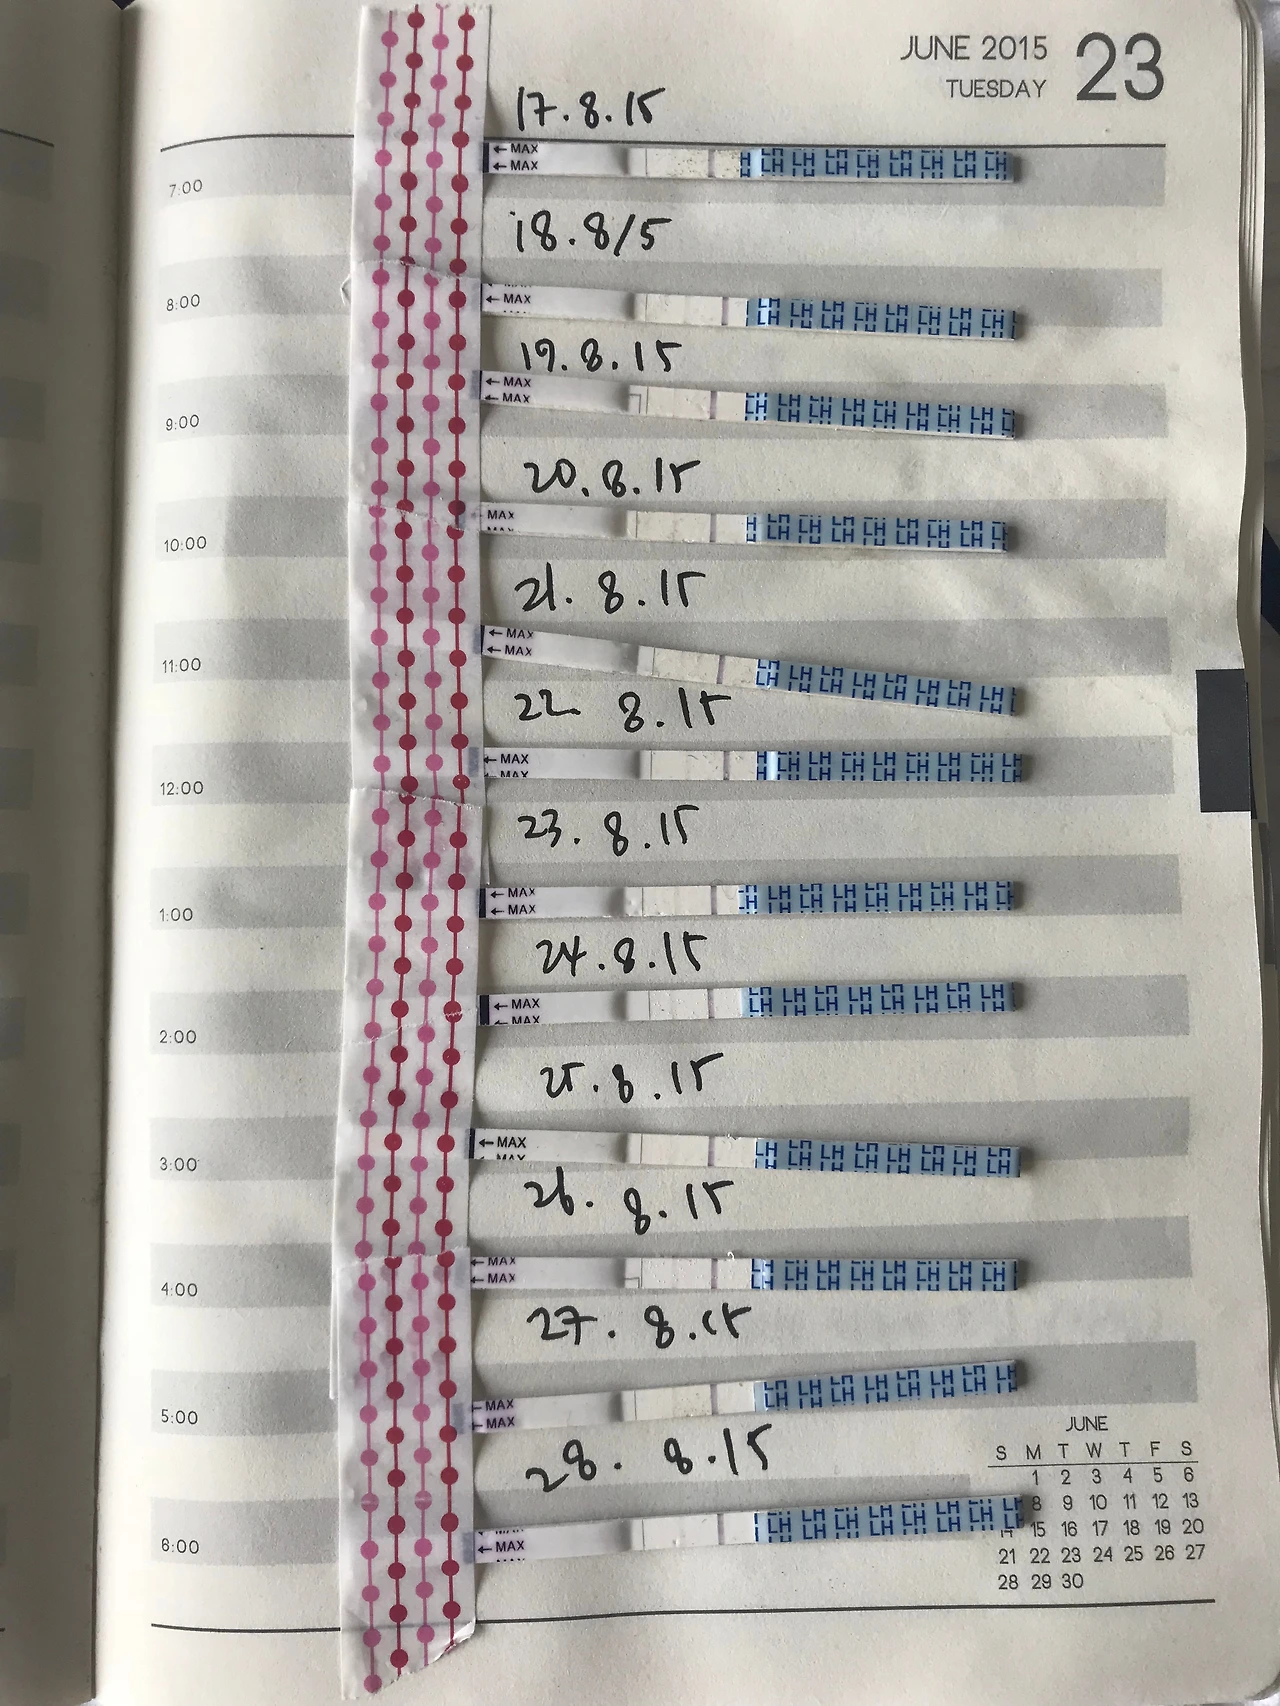 JUNE 2015 23
TUESDAY
17.8.15
← MAX
← MAX
LH LH LH LH LH LH LH LH
7:00
18.8/5
8:00
← MAX
LH LH LH LH LH LH LH LH
19.8.15
← MAX
← MAX
LH LH LH LH LH LH LH
9:00
20.8.15
MAX
LH LH LH LH LH LH LH
10:00
21.8.15
← MAX
← MAX
LH LH LH LH LH LH LH
11:00
22 8.15
← MAX
LH LH LH LH LH LH LH
12:00
23.8.15
← MAX
← MAX
LH LH LH LH LH LH LH
1:00
24.8.15
← MAX
← MAX
LH LH LH LH LH LH LH LH
2:00
25.8.15
← MAX
LH LH LH LH LH LH LH LH
3:00
26.8.15
← MAX
← MAX
LH LH LH LH LH LH LH LH
4:00
27.8.15
← MAX
← MAX
LH LH LH LH LH LH LH
5:00
28.8.15
← MAX
LH LH LH LH LH LH LH
6:00
JUNE
S M T W T F S
1 2 3 4 5 6
8 9 10 11 12 13
14 15 16 17 18 19 20
21 22 23 24 25 26 27
28 29 30